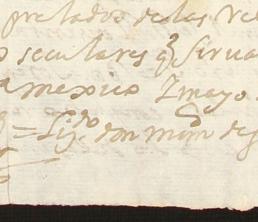 prelados de las Re
o seculares q̃ sirua
a mexico 7 mayo
= Liz.do don